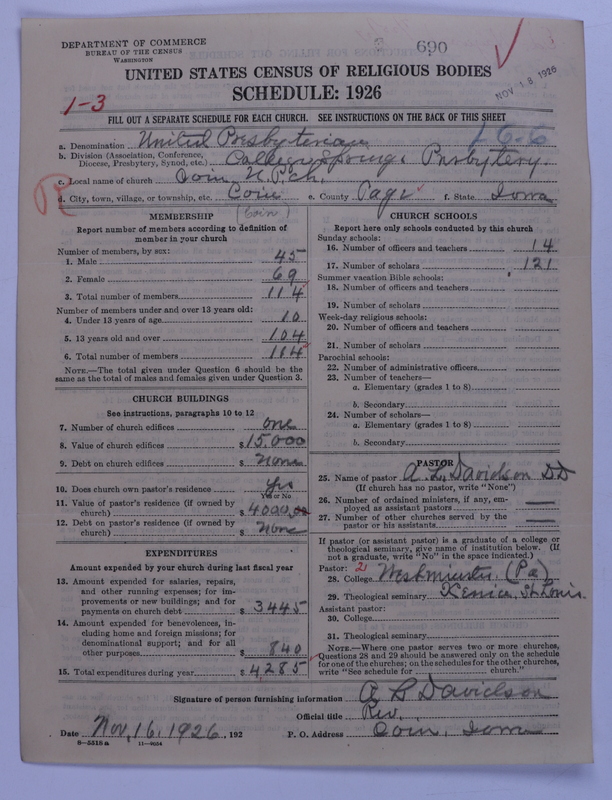 DEPARTMENT OF COMMERCE
BUREAU OF THE CENSUS
WASHINGTON
690
NOV 18 1926
UNITED STATES CENSUS OF RELIGIOUS BODIES
SCHEDULE: 1926
1-3
FILL OUT A SEPARATE SCHEDULE FOR EACH CHURCH. SEE INSTRUCTIONS ON THE BACK OF THIS SHEET
a. Denomination United Presbyterian
b. Division (Association, Conference, Diocese, Presbytery, Synod, etc.) College Springs Presbytery.
c. Local name of church Coin U. P. ch.
d. City, town, village, or township, etc. Coin e. County Page f. State Iowa
(Coin)
MEMBERSHIP
Report number of members according to definition of
member in your church
Number of members, by sex:
1. Male 45
2. Female 69
3. Total number of members 114
Number of members under and over 13 years old:
4. Under 13 years of age 10
5. 13 years old and over 104
6. Total number of members 114
NOTE.—The total given under Question 6 should be
same as the total of males and females given under Question 3.
CHURCH BUILDINGS
See instructions, paragraphs 10 to 12
7. Number of church edifices one
8. Value of church edifices $ 15,000
9. Debt on church edifices $ None
10. Does church own pastor's residence yes
Yes or No
11. Value of pastor's residence (if owned by
church) $ 4000.00
12. Debt on pastor's residence (if owned by
church) $ None
EXPENDITURES
Amount expended by your church during last fiscal year
13. Amount expended for salaries, repairs,
and other running expenses; for im-
provements or new buildings; and for
payments on church debt $ 3445
14. Amount expended for benevolences, in-
cluding home and foreign missions; for
denominational support; and for all
other purposes $ 840
15. Total expenditures during year $ 4,285
CHURCH SCHOOLS
Report here only schools conducted by this church
Sunday schools:
16. Number of officers and teachers 14
17. Number of scholars 121
Summer vacation Bible schools:
18. Number of officers and teachers
19. Number of scholars
Week-day religious schools:
20. Number of officers and teachers
21. Number of scholars
Parochial schools:
22. Number of administrative officers
23. Number of teachers—
a. Elementary (grades 1 to 8)
b. Secondary
24. Number of scholars—
a. Elementary (grades 1 to 8)
b. Secondary
PASTOR
25. Name of pastor A. L. Davidson DD
(If church has no pastor, write "None")
26. Number of ordained ministers, if any, em-
ployed as assistant pastors —
27. Number of other churches served by the
pastor or his assistants —
If pastor (or assistant pastor) is a graduate of a college or
theological seminary, give name of institution below. (If
not a graduate, write "No" in the space indicated.)
Pastor: 2
28. College Westminster (Pa)
29. Theological seminary Xenia, St. Louis.
Assistant pastor:
30. College
31. Theological seminary
NOTE.—Where one pastor serves two or more churches,
Questions 28 and 29 should be answered only on the schedule
for one of the churches; on the schedules for the other churches,
write "See schedule for church."
Signature of person furnishing information A L Davidson
Official title Rev.
Date Nov, 16, 1926, 192 P. O. Address Coin, Iowa
8—5515 a 11—9034